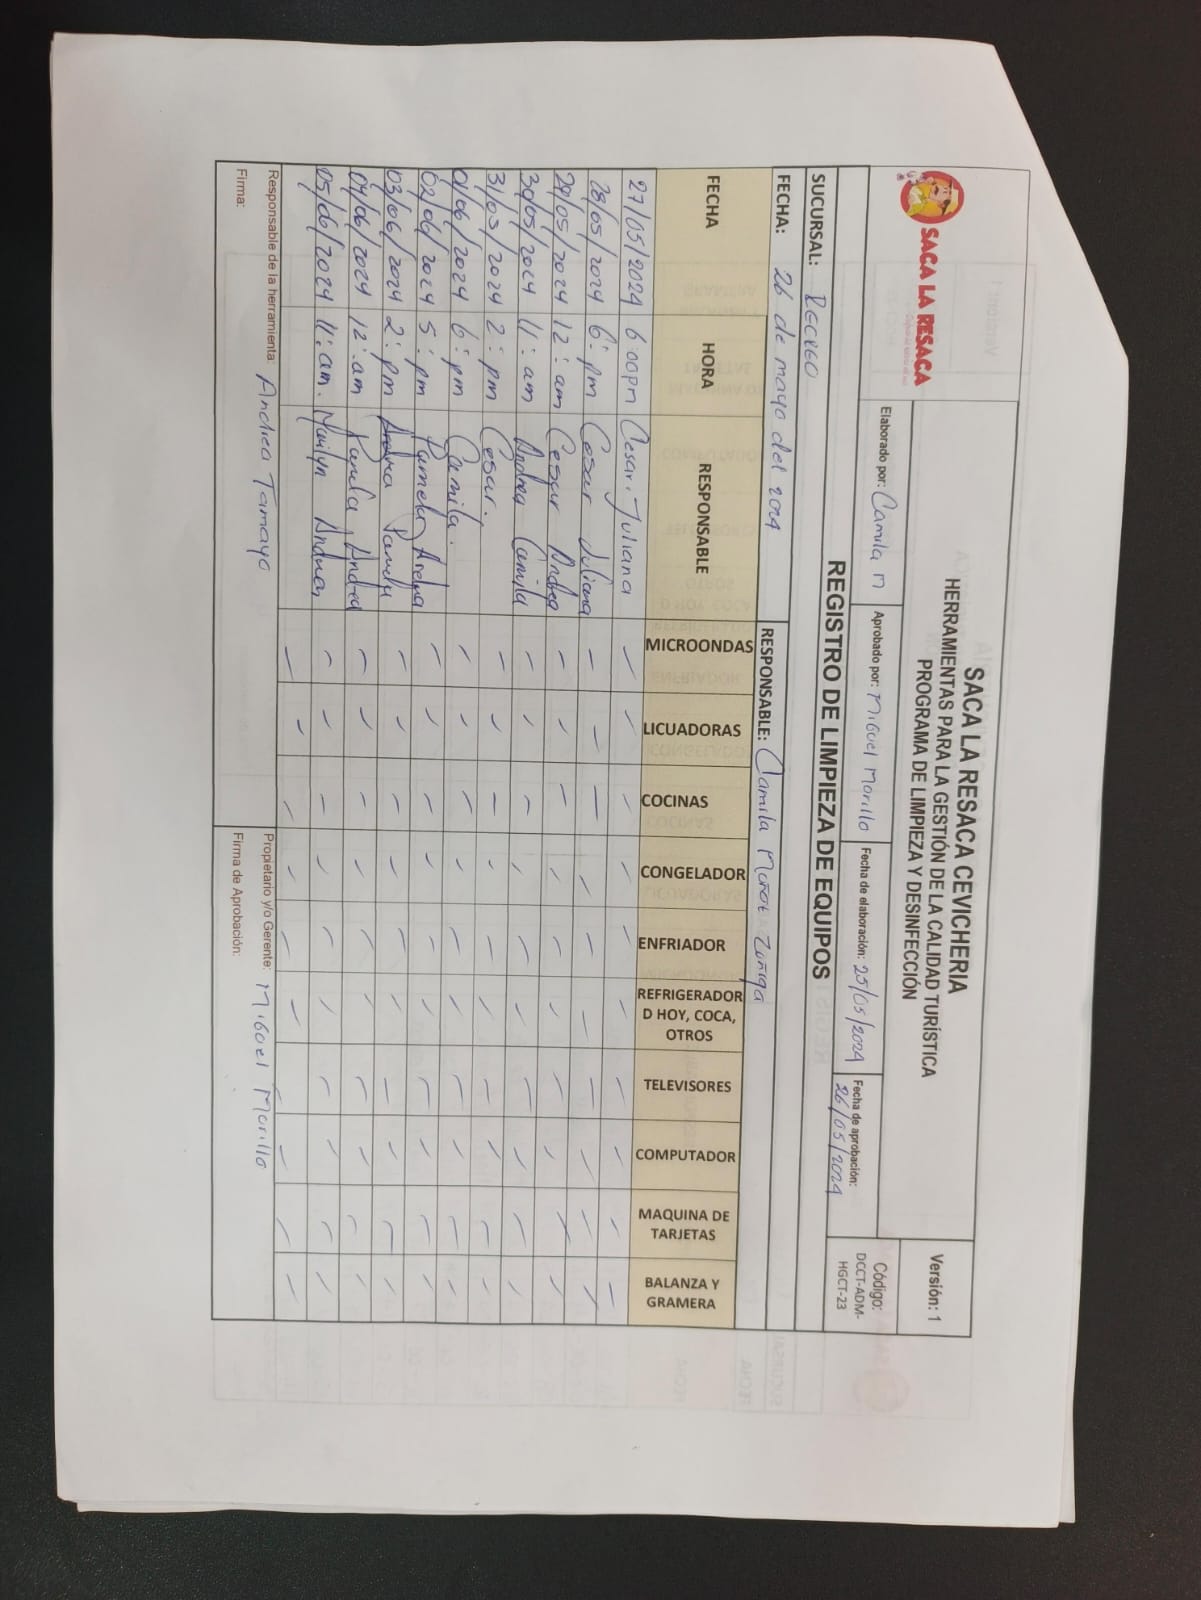 SACA LA RESACA
SACA LA RESACA CEVICHERIA
HERRAMIENTAS PARA LA GESTIÓN DE LA CALIDAD TURÍSTICA
PROGRAMA DE LIMPIEZA Y DESINFECCIÓN
Versión: 1
Elaborado por: Camila M
Aprobado por: Miguel Morillo
Fecha de elaboración: 25/05/2024
Fecha de aprobación: 26/05/2024
Código: DCCT-ADM-HGCT-23
REGISTRO DE LIMPIEZA DE EQUIPOS
SUCURSAL: Recreo
FECHA: 26 de mayo del 2024 RESPONSABLE: Camila Muñoz Zuñiga
FECHA HORA RESPONSABLE MICROONDAS LICUADORAS COCINAS CONGELADOR ENFRIADOR REFRIGERADOR D HOY, COCA, OTROS TELEVISORES COMPUTADOR MAQUINA DE TARJETAS BALANZA Y GRAMERA
27/05/2024 6:00pm Cesar, Juliana ✓ ✓ ✓ ✓ ✓ ✓ ✓ ✓ ✓ ✓
28/05/2024 6: pm Cesar Juliana ✓ ✓ ✓ ✓ ✓ ✓ ✓ ✓ ✓ ✓
29/05/2024 12: am Cesar Andrea ✓ ✓ ✓ ✓ ✓ ✓ ✓ ✓ ✓ ✓
30/05/2024 11: am Andrea Camila ✓ ✓ ✓ ✓ ✓ ✓ ✓ ✓ ✓ ✓
31/05/2024 2: pm Cesar. ✓ ✓ ✓ ✓ ✓ ✓ ✓ ✓ ✓ ✓
01/06/2024 6: pm Camila. ✓ ✓ ✓ ✓ ✓ ✓ ✓ ✓ ✓ ✓
02/06/2024 5: pm Pamela, Andrea ✓ ✓ ✓ ✓ ✓ ✓ ✓ ✓ ✓ ✓
03/06/2024 2: pm Andrea Pamela ✓ ✓ ✓ ✓ ✓ ✓ ✓ ✓ ✓ ✓
04/06/2024 12: am Pamela, Andrea ✓ ✓ ✓ ✓ ✓ ✓ ✓ ✓ ✓ ✓
05/06/2024 11: am. Marilyn Andrea ✓ ✓ ✓ ✓ ✓ ✓ ✓ ✓ ✓ ✓
Responsable de la herramienta: Andrea Tamayo
Propietario y/o Gerente: Miguel Morillo
Firma:
Firma de Aprobación: